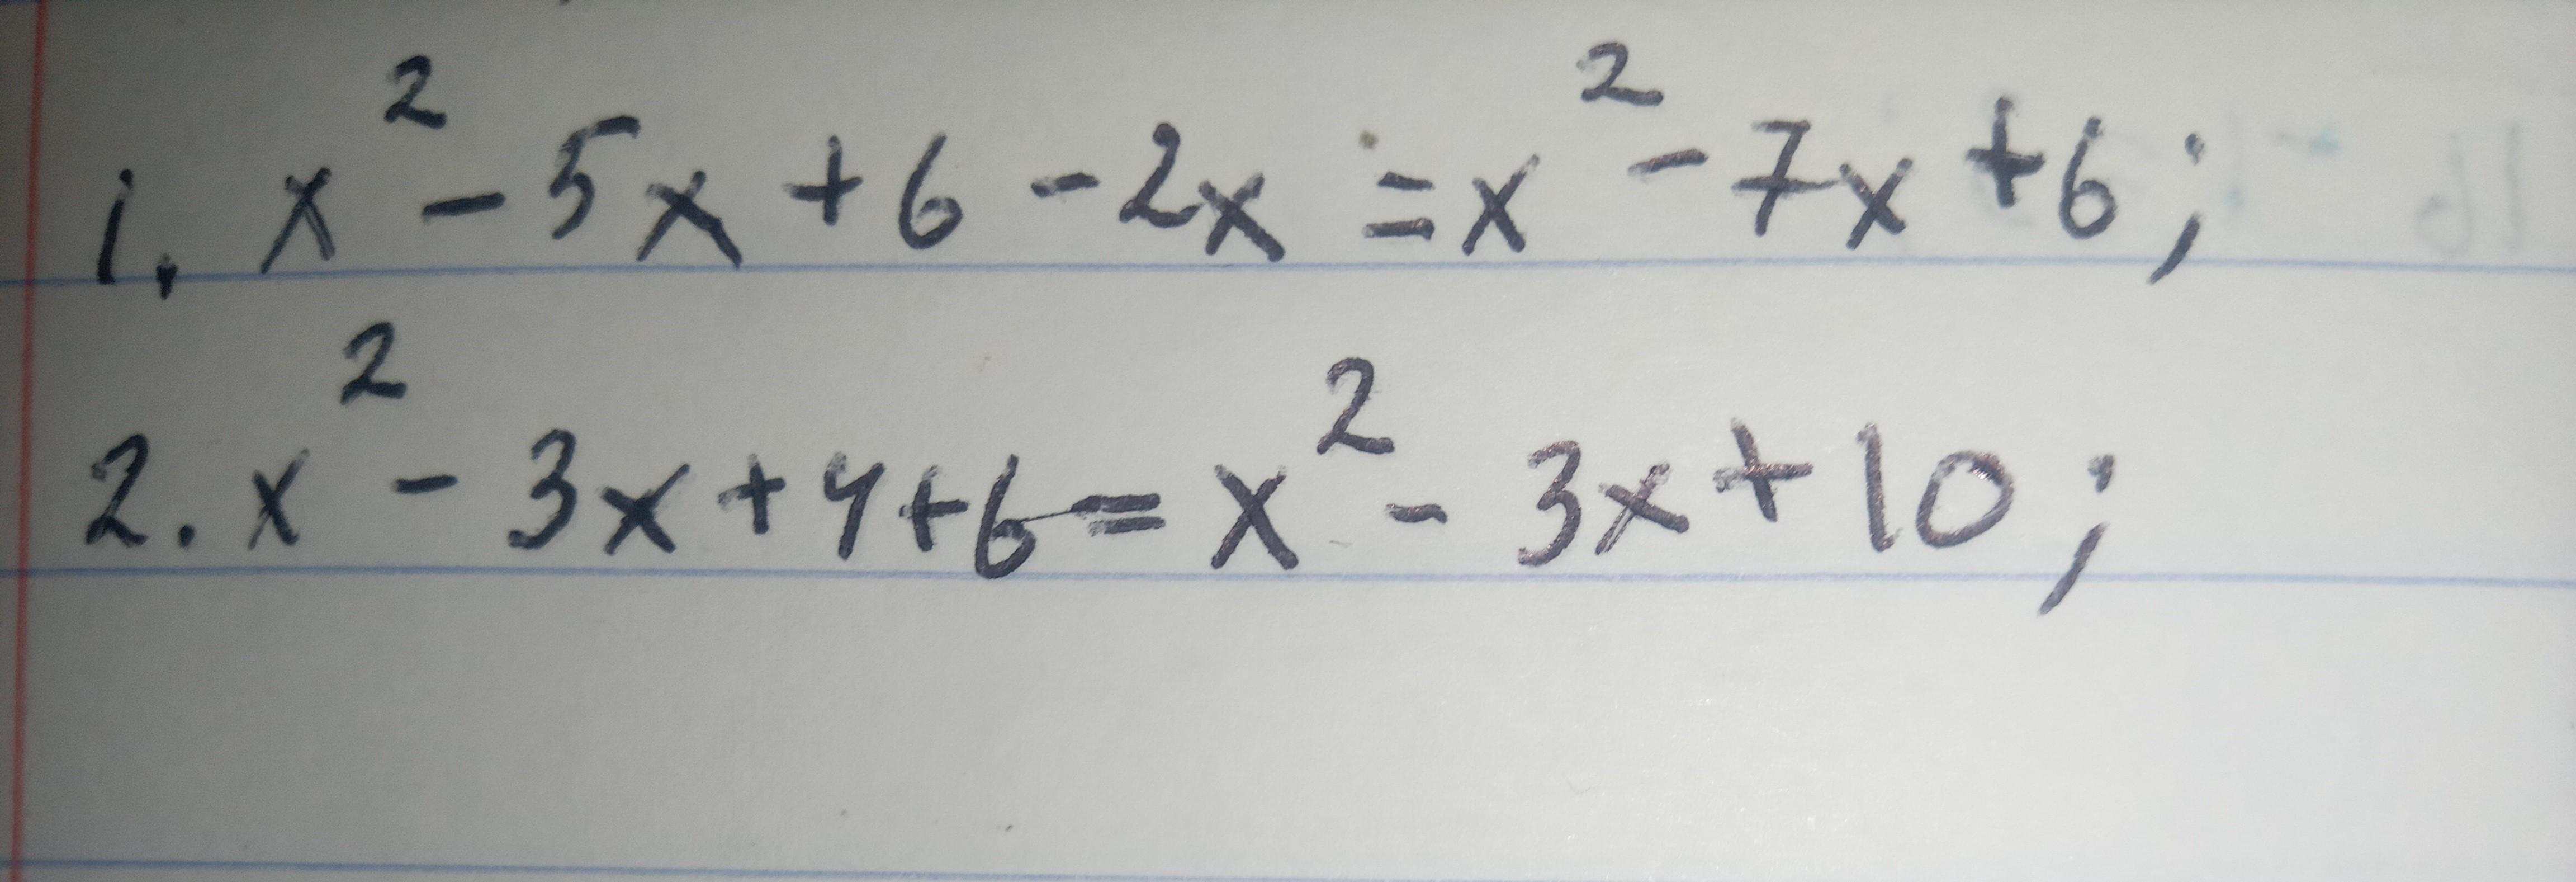 1. x² - 5x + 6 - 2x = x² - 7x + 6;
2. x² - 3x + 4 + 6 = x² - 3x + 10;